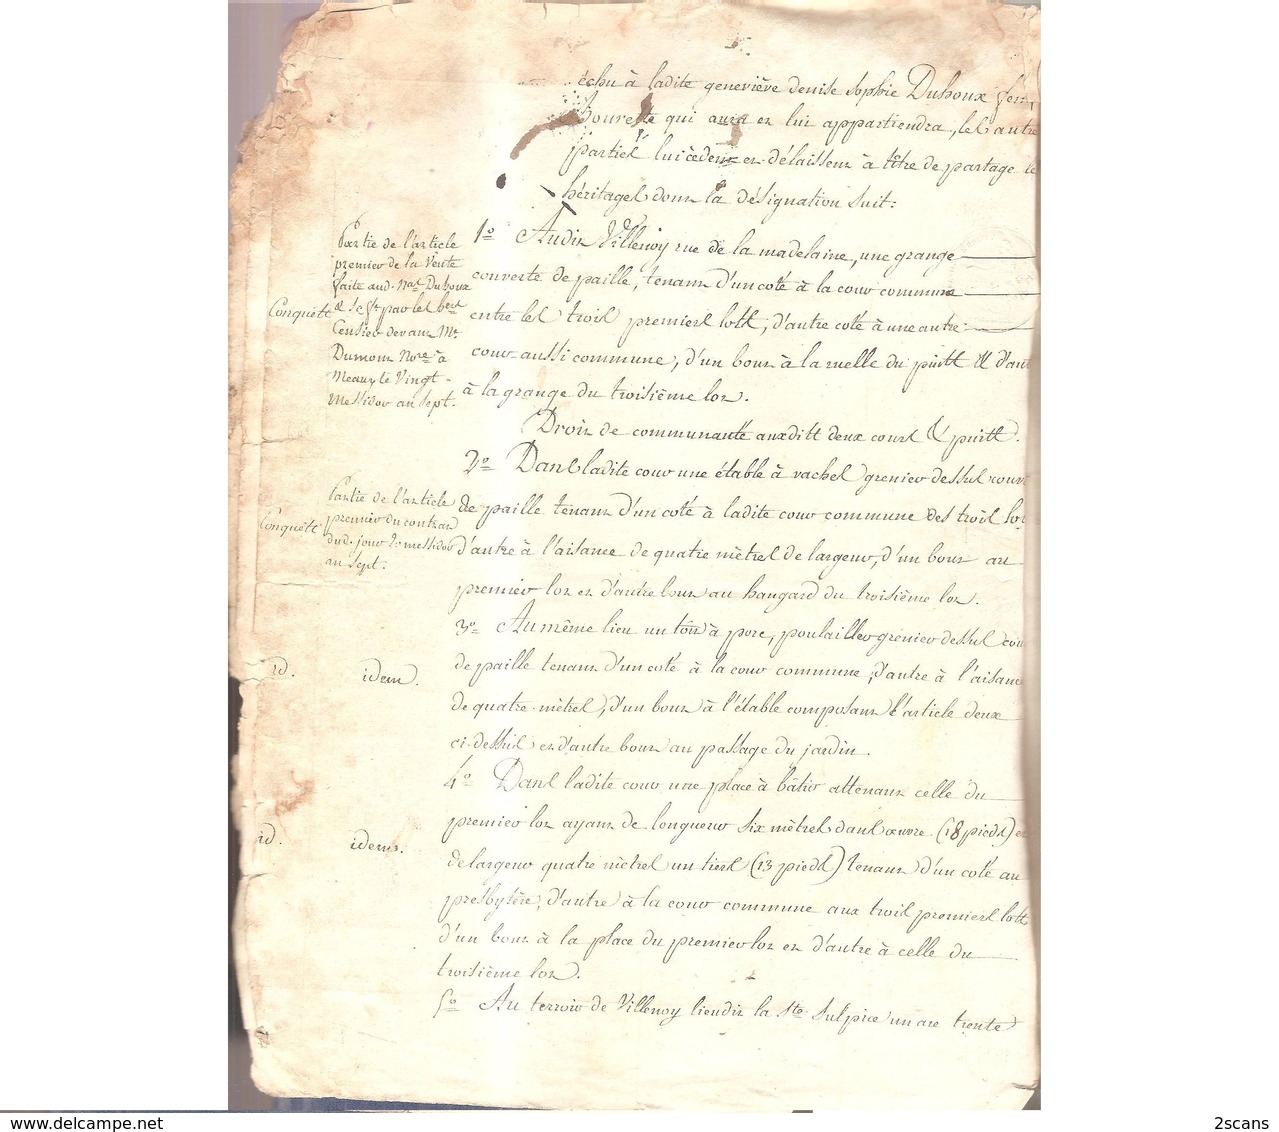 échu à ladite geneviève denise sophie Duhoux fem
bourette qui aura et lui appartiendra, les autre
parties lui cèdent et délaissent à titre de partage le
héritages dont la désignation suit:
1º Audit Villenoy rue de la madelaine, une grange
couverte de paille, tenant d'un coté à la cour commune
entre les trois premiers lots, d'autre coté à une autre
cour aussi commune, d'un bout à la ruelle du puits & d'aut
à la grange du troisième lot.
Partie de l'article
premier de la Vente
faite aud. Nas Duhoux
& sa fe par les hers
Censier devant Me
Dumont Nore à
Meaux le Vingt
Messidor an sept.
Conquêts
Droit de communauté auxdits deux cours & puits.
2º Dans ladite cour une étable à vaches grenier dessus couv
de paille tenant d'un coté à ladite cour commune des trois lot
d'autre à l'aisance de quatre mètres de largeur, d'un bout au
premier lot et d'autre bout au hangard du troisième lot.
Partie de l'article
premier du contrat
dud. jour 20 messidor
an sept.
Conquêts
3º Au même lieu un toit à porc, poulailler grenier dessus cou
de paille tenant d'un coté à la cour commune, d'autre à l'aisanc
de quatre mètres, d'un bout à l'étable composant l'article deux
ci-dessus et d'autre bout au passage du jardin.
id. idem.
4º Dans ladite cour une place à bâtir attenant celle du
premier lot ayant de longueur six mètres dans œuvre (18 pieds) et
de largeur quatre mètres un tiers (13 pieds) tenant d'un coté au
presbytère, d'autre à la cour commune aux trois premiers lots
d'un bout à la place du premier lot et d'autre à celle du
troisième lot.
id. idem.
5º Au terroir de Villenoy lieudit la Ste Sulpice un are trente
2scans